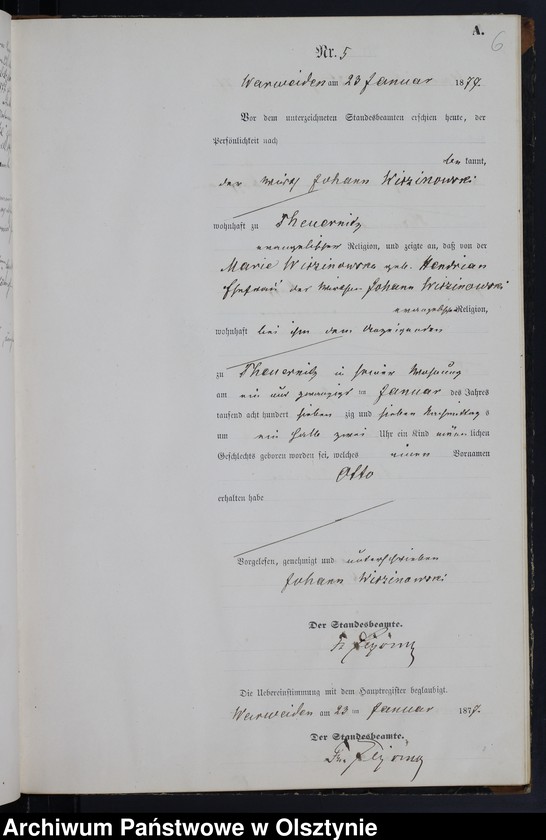 A.
6
Nr. 5
Warweiden am 23 Januar 1877.
Vor dem unterzeichneten Standesbeamten erschien heute, der
Persönlichkeit nach
be kannt,
der Wirth Johann Wiszinowski
wohnhaft zu Theuernitz
evangelischer Religion, und zeigte an, daß von der
Marie Wiszinowska geb. Hendrian
Ehefrau des Wirthen Johann Wiszinowski
evangelisch Religion,
wohnhaft bei ihm dem Anzeigenden
zu Theuernitz in seiner Wohnung
am ein und zwanzigst en Januar des Jahres
tausend acht hundert sieben zig und sieben Nachmittag s
um ein halb zwei Uhr ein Kind männ lichen
Geschlechts geboren worden sei, welches einen Vornamen
Otto
erhalten habe
Vorgelesen, genehmigt und unterschrieben
Johann Wiszinowski
Der Standesbeamte.
Die Uebereinstimmung mit dem Hauptregister beglaubigt.
Warweiden am 23 en Januar 1877.
Der Standesbeamte.
Archiwum Państwowe w Olsztynie